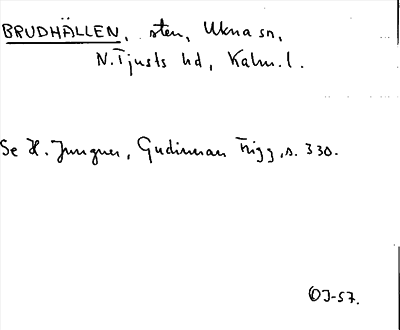 BRUDHÄLLEN, sten, Ukna sn,
N. Tjusts hd, Kalm. l.
Se H. Jungner, Gudinnan Frigg, s. 330.
OJ-57.